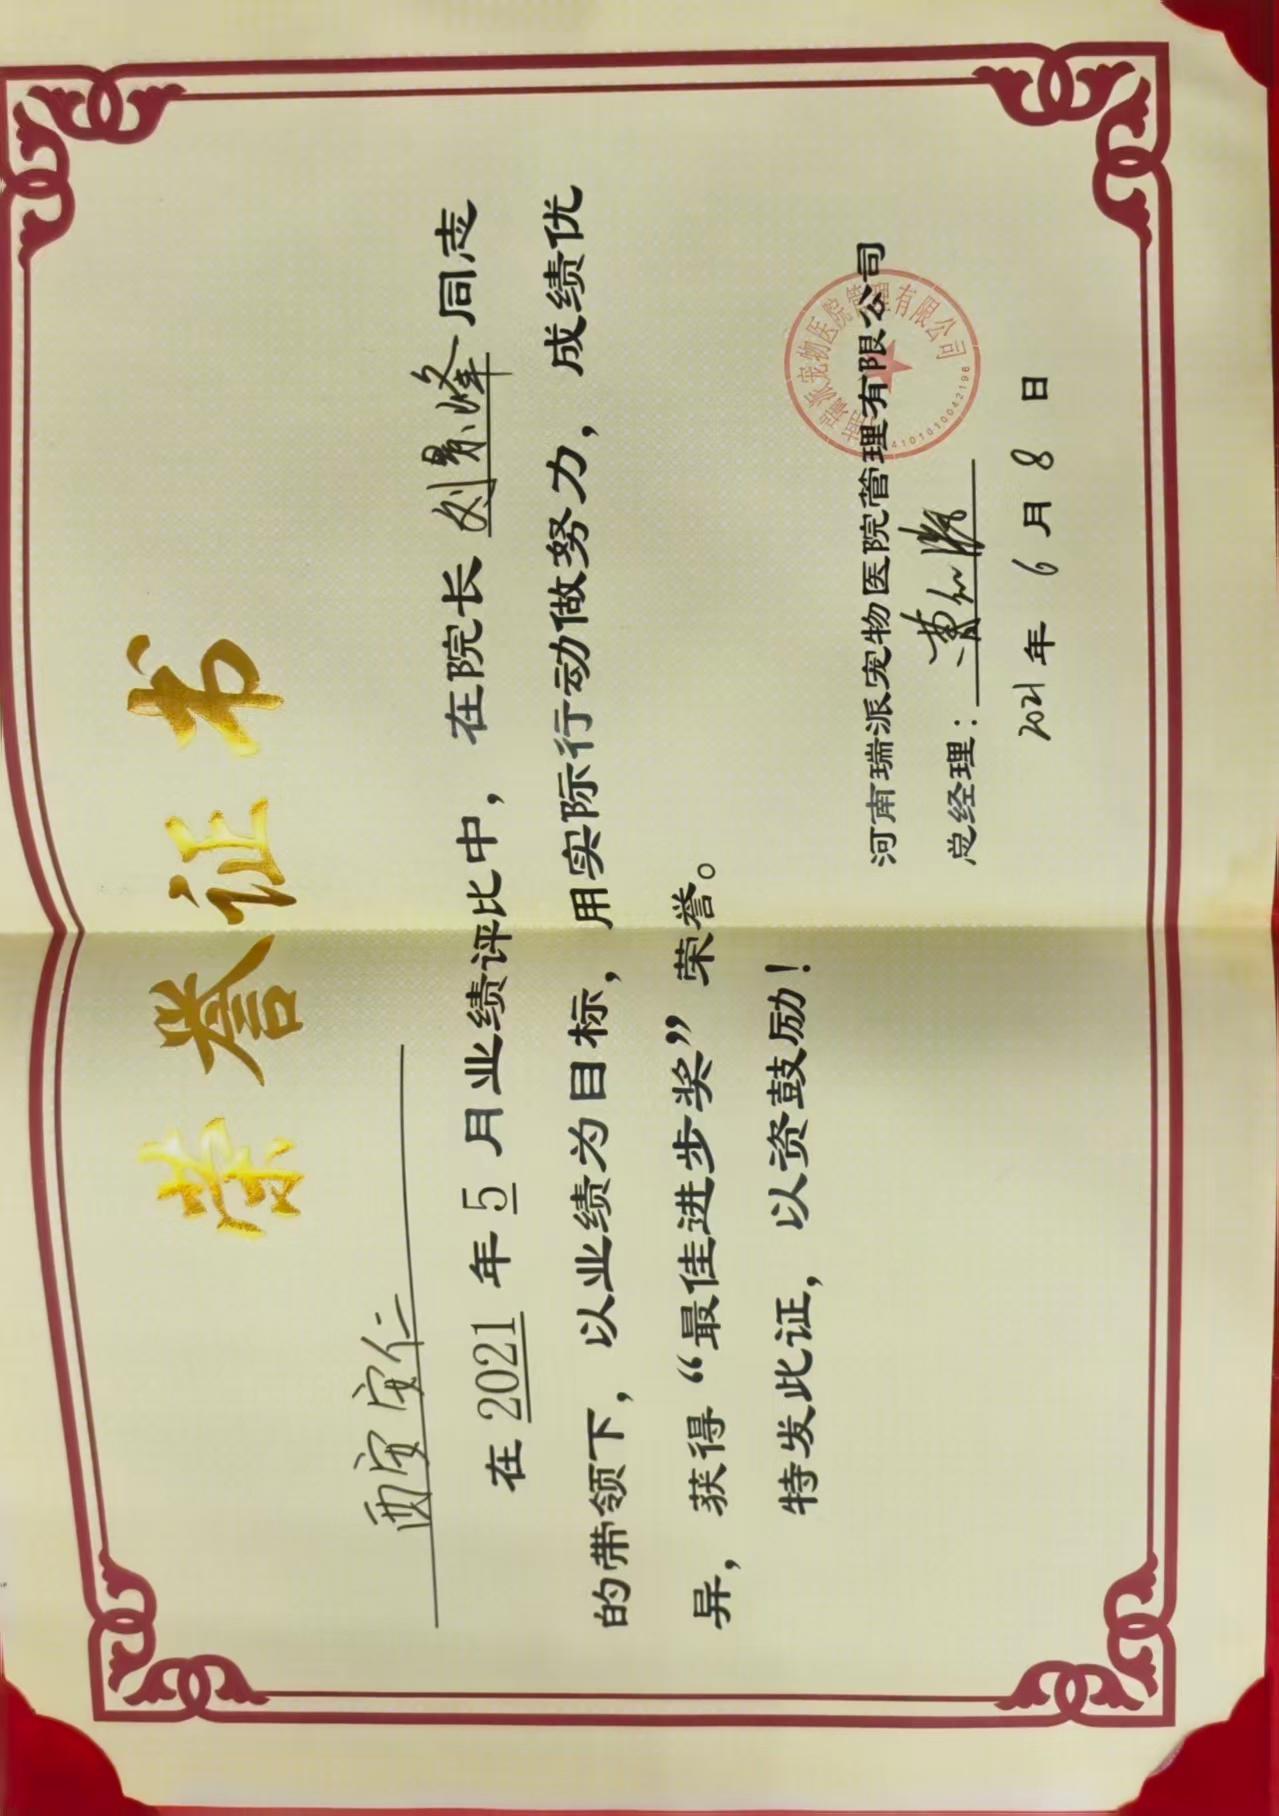 荣誉证书
西安安仁
在 2021 年 5 月业绩评比中，在院长 刘景峰 同志
的带领下，以业绩为目标，用实际行动做努力，成绩优
异，获得“最佳进步奖”荣誉。
特发此证，以资鼓励！
河南瑞派宠物医院管理有限公司
总经理：
2021 年 6 月 8 日
南瑞派宠物医院管理有限公司
4101010042196